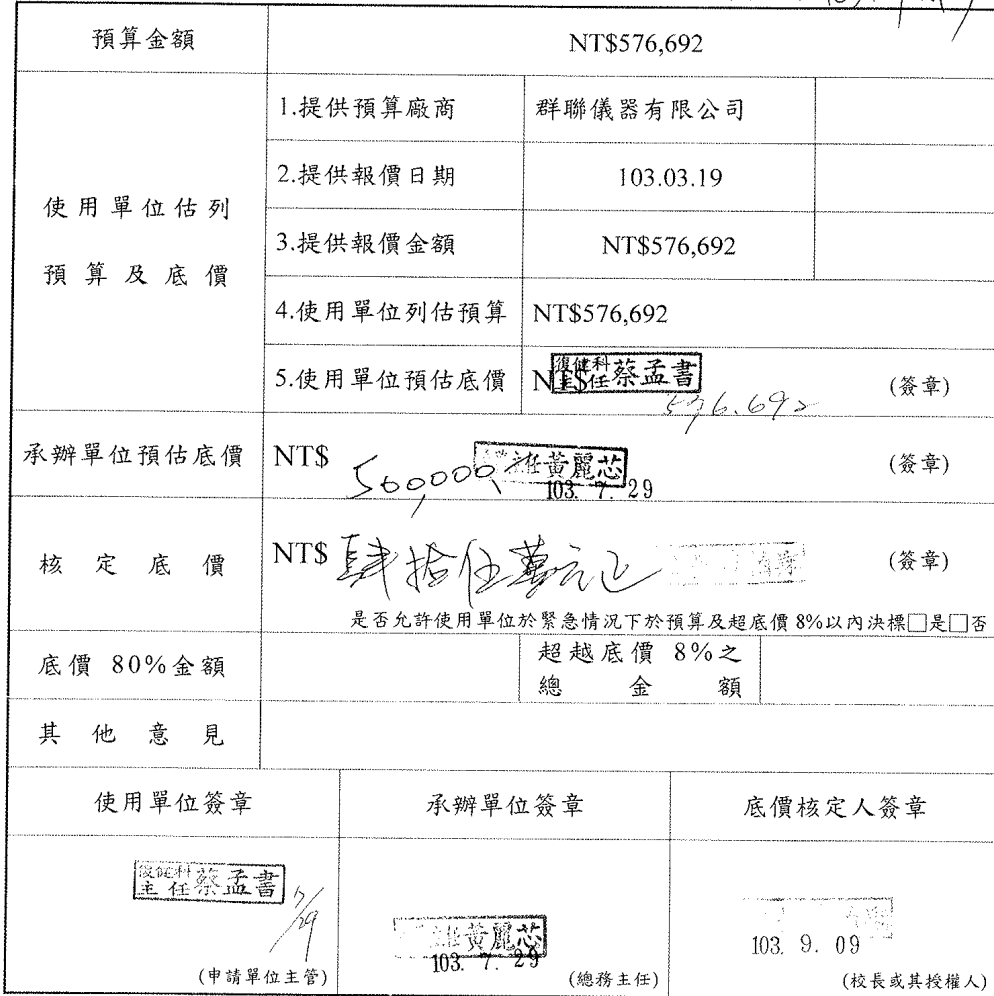 預算金額 NT$576,692
使用單位估列
預算及底價
1.提供預算廠商 群聯儀器有限公司
2.提供報價日期 103.03.19
3.提供報價金額 NT$576,692
4.使用單位列估預算 NT$576,692
5.使用單位預估底價 NT$ 復健科主任蔡孟書 (簽章)
576.692
承辦單位預估底價 NT$ 560,000 主任黃麗芯 (簽章)
103. 7. 29
核定底價 NT$ 肆拾伍萬元正 (簽章)
是否允許使用單位於緊急情況下於預算及超底價 8%以內決標□是□否
底價 80%金額
超越底價 8%之
總金額
其他意見
使用單位簽章 承辦單位簽章 底價核定人簽章
復健科
主任蔡孟書
7/29
主任黃麗芯
103. 7. 29
103. 9. 09
(申請單位主管) (總務主任) (校長或其授權人)